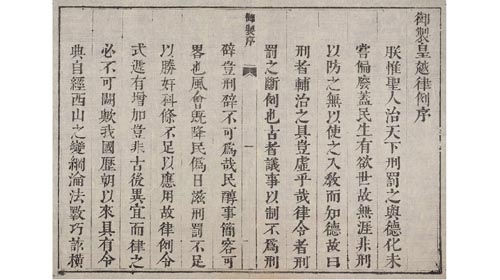 御製皇越律例序
朕惟聖人治天下刑罰之與德化未
嘗偏廢蓋民生有欲世故無涯非刑
以防之無以使之入教而知德故曰
刑者輔治之具豈虛乎哉律令者刑
罰之斷例也古者議事以制不為刑
御製序
一
辟豈刑辟不可為哉民醇事簡容可
畧也風會既降民偽日滋刑罰不足
以勝奸科條不足以應用故律例令
式遞有增加豈非古後異宜而律之
必不可闕歟我國歷朝以來具有令
典自經西山之變綱淪法斁巧詆橫